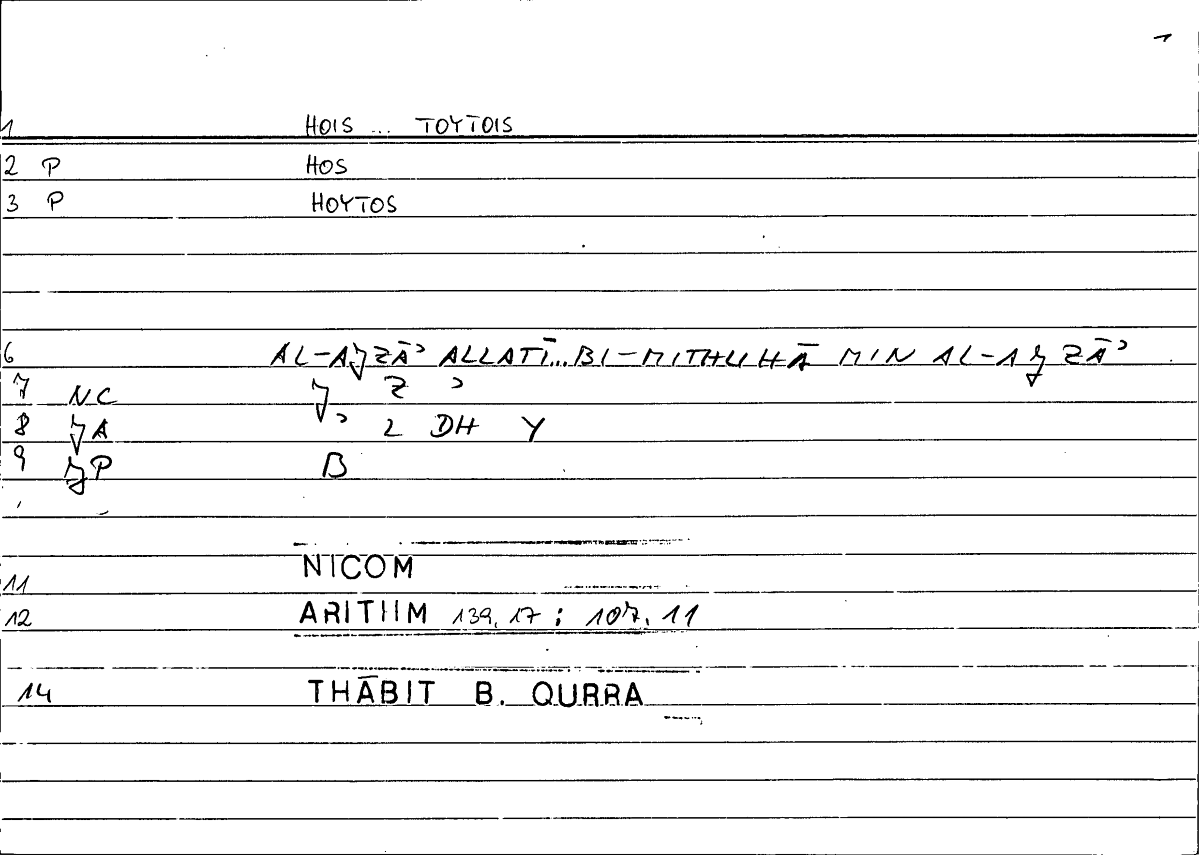 1
1 HOIS ... TOYTOIS
2 P HOS
3 P HOYTOS
6 AL-AJZĀʾ ALLATĪ...BI-MITHLIHĀ MIN AL-AJZĀʾ
7 NC J Z ʾ
8 JA ʾ L DH Y
9 JP B
11 NICOM
12 ARITHM 139,17 : 107,11
14 THĀBIT B. QURRA